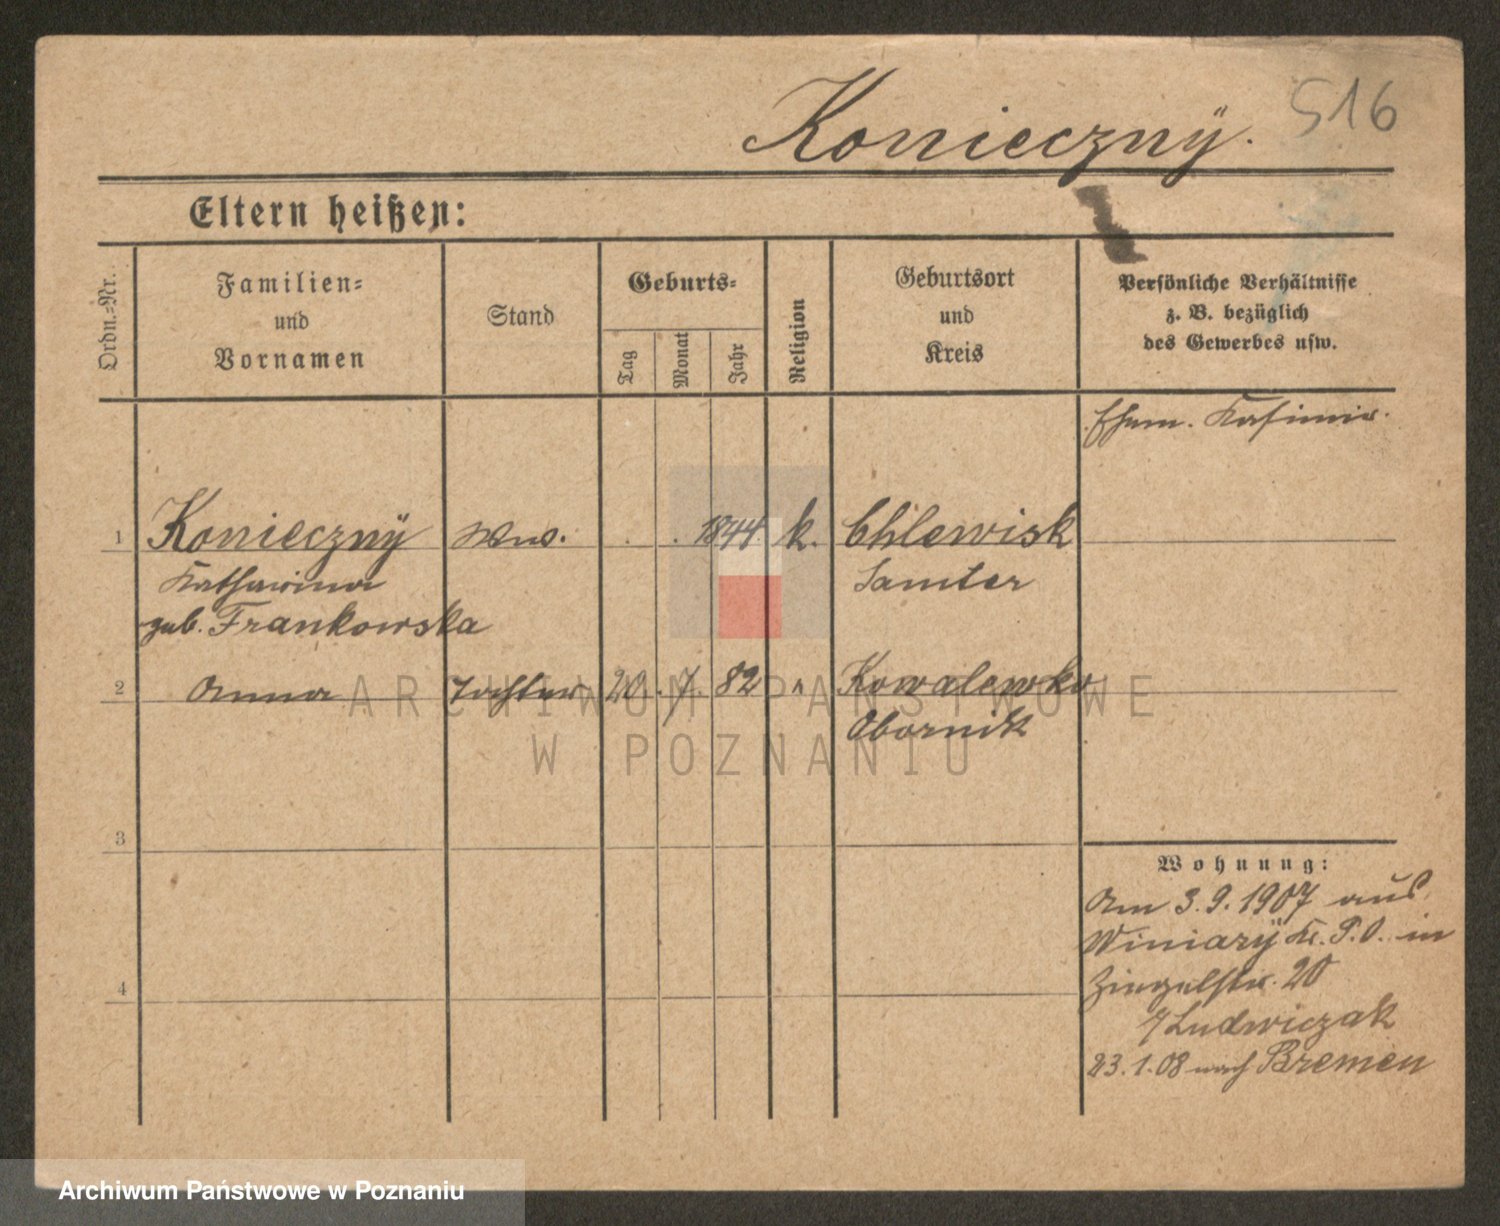 516
Koniecznÿ.
Eltern heißen:
Ordn.-Nr.
Familien-
und
Vornamen
Stand
Geburts-
Tag
Monat
Jahr
Religion
Geburtsort
und
Kreis
Persönliche Verhältnisse
z. B. bezüglich
des Gewerbes usw.
Ehem. Kasimir.
1 Koniecznÿ Wwe. . . 1844. k. Chlewisk
Katharina Samter
geb. Frankowska
2 Anna Tochter 20. 7. 82 " Kowalewko
Obornik
3
Wohnung:
Am 3.9.1907 aus
Winiarÿ Kr. P.O. in
4
Ziegelstr. 20
Ludwiczak
23.1.08 nach Bremen
ARCHIWUM PAŃSTWOWE
W POZNANIU
Archiwum Państwowe w Poznaniu